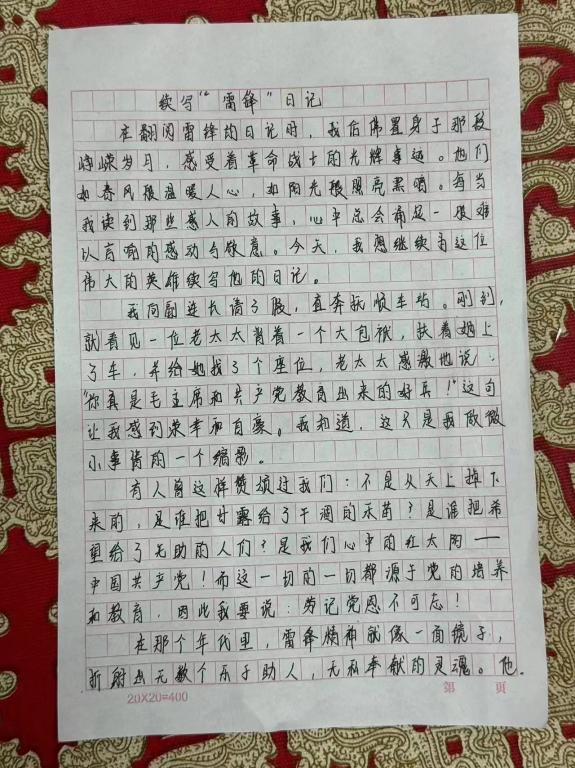 续写“雷锋”日记
在翻阅雷锋的日记时，我仿佛置身于那段
峥嵘岁月，感受着革命战士的光辉事迹。他们
如春风般温暖人心，如阳光般照亮黑暗。每当
我读到那些感人的故事，心中总会涌起一股难
以言喻的感动与敬意。今天，我想继续为这位
伟大的英雄续写他的日记。
我向副连长请了假，直奔抚顺车站。刚到，
就看见一位老太太背着一个大包袱，扶着她上
了车，并给她找了个座位，老太太感激地说：
“你真是毛主席和共产党教育出来的好兵！”这句
让我感到荣幸和自豪。我知道，这只是我做微
小事情的一个缩影。
有人曾这样赞颂过我们：不是从天上掉下
来的，是谁把甘露给了干涸的禾苗？是谁把希
望给了无助的人们？是我们心中的红太阳——
中国共产党！而这一切的一切都源于党的培养
和教育，因此我要说：劳记党恩不可忘！
在那个年代里，雷锋精神就像一面镜子，
折射出无数个乐于助人，无私奉献的灵魂。他.
20×20=400
第 页